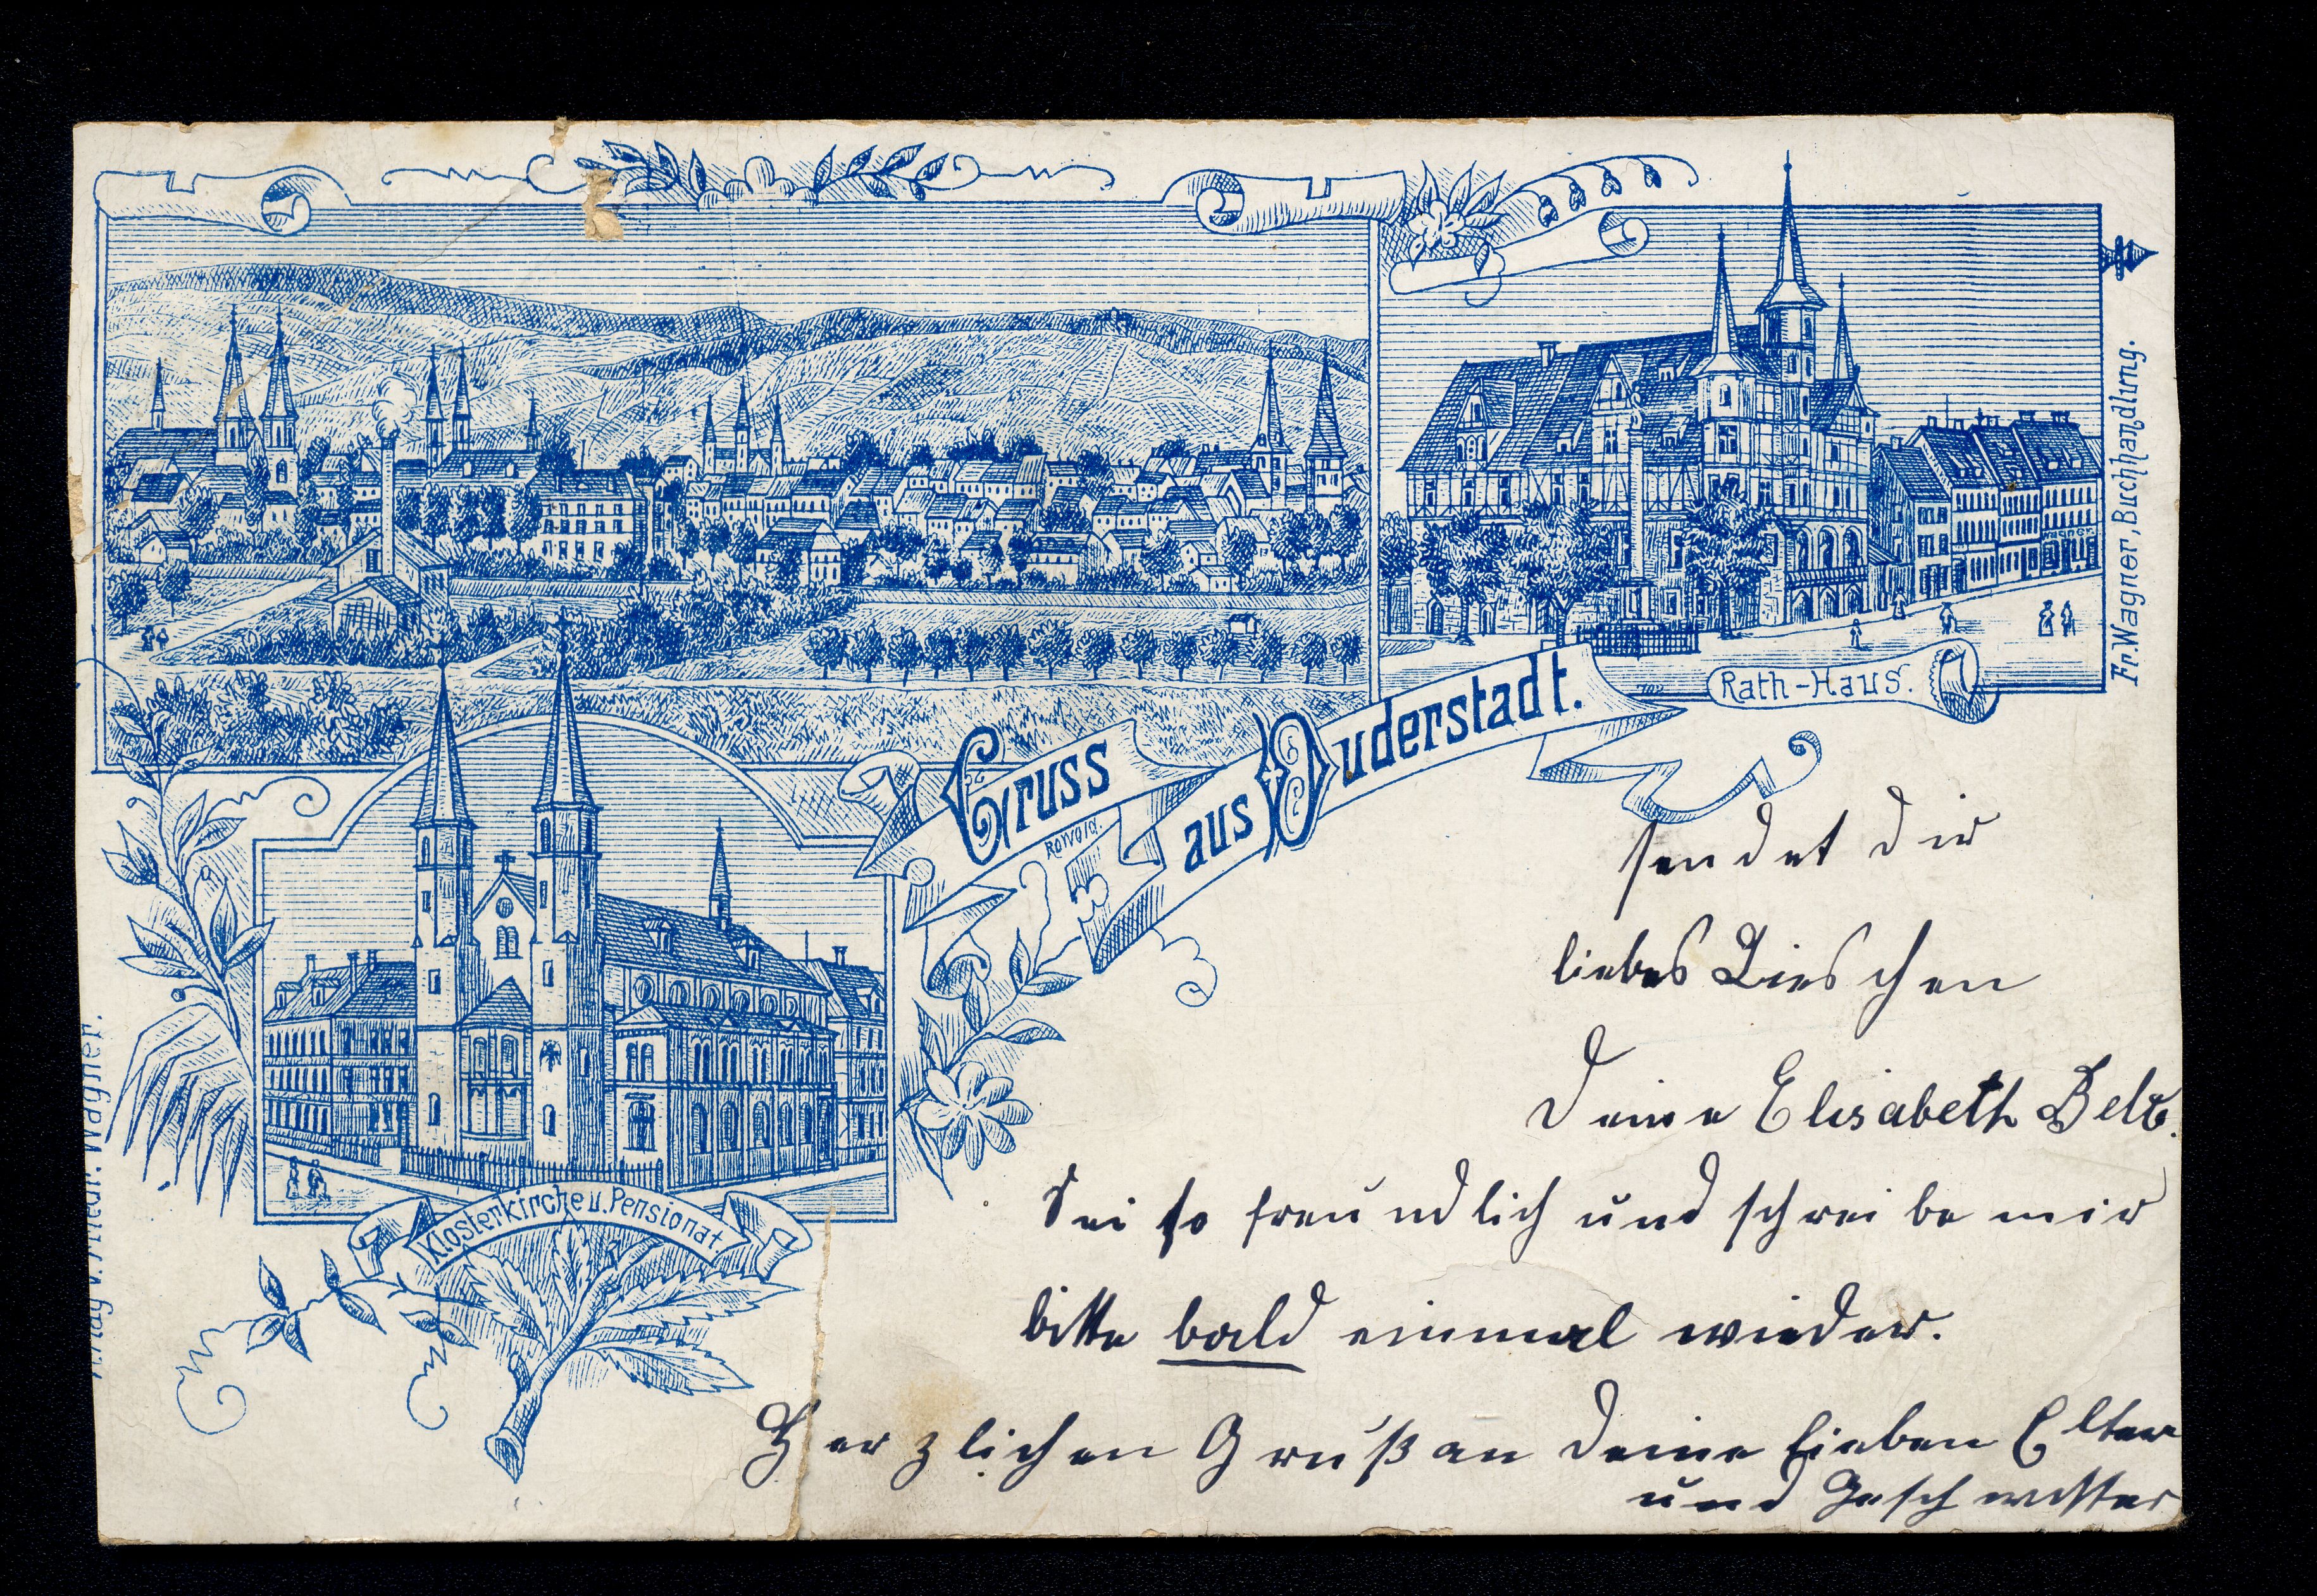 Fr. Wagner, Buchhandlung.
Rath-Haus.
Gruss
aus Duderstadt.
Rowold.
sendet dir
liebes Lieschen
Deine Elisabeth
Sei so freundlich und schreibe mir
bitte bald einmal wieder.
Herzlichen Gruß an Deine lieben Elter
und Geschwister
Klosterkirche u. Pensionat
v. Friedr. Wagner.